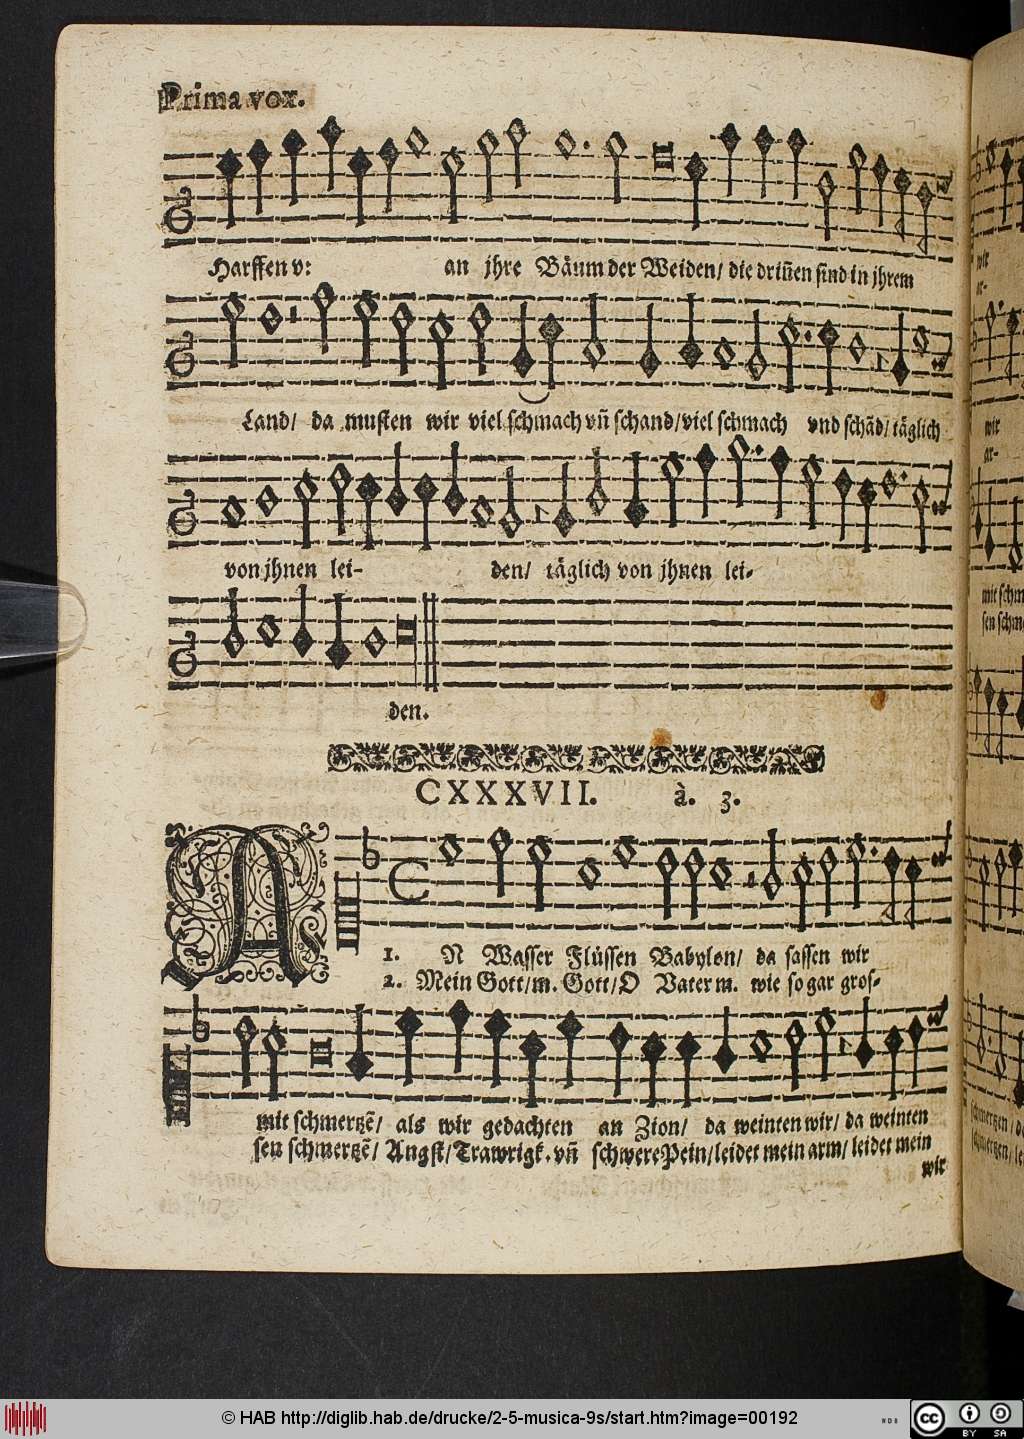 Prima vox.
Harffen v: an jhre Bäum der Weiden/ die driñen sind in jhrem
Land/ da musten wir viel schmach vñ schand/ viel schmach vnd schãd/ täglich
von jhnen lei- den/ täglich von jhnen lei-
den.
CXXXVII. à. 3.
A
1. N Wasser Flüssen Babylon/ da sassen wir
2. Mein Gott/ m. Gott/ O Vater m. wie so gar gros-
mit schmertzẽ/ als wir gedachten an Zion/ da weinten wir/ da weinten
sen schmertzẽ/ Angst/ Trawrigk. vñ schwere Pein/ leidet mein arm/ leidet mein
wir
wir
ar-
wir
ar-
mit schm
sen schm
schmertzen/ d
schmertzen/ le
© HAB http://diglib.hab.de/drucke/2-5-musica-9s/start.htm?image=00192
cc BY SA